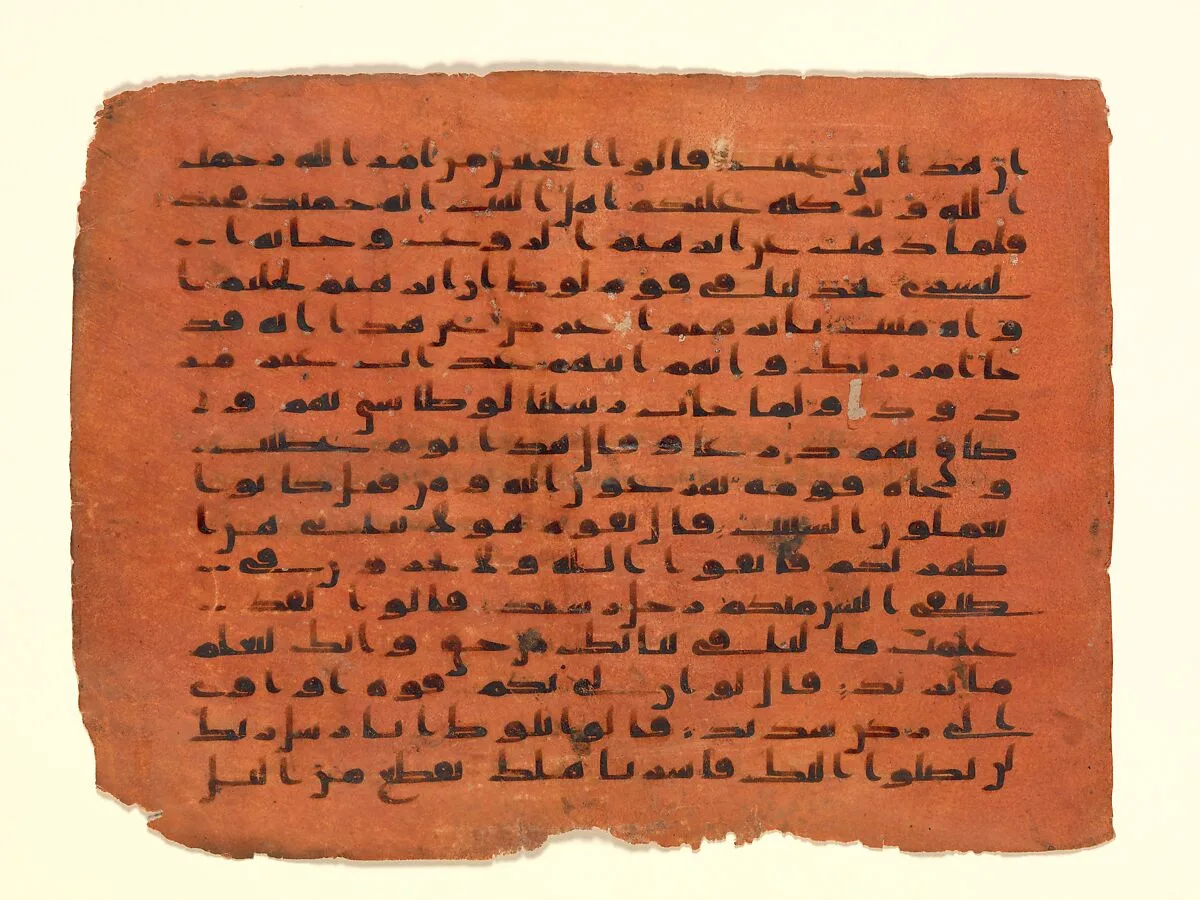 ان هذا لشي عجيب قالوا اتعجبين من امر الله رحمت
الله وبركته عليكم اهل البيت انه حميد مجيد
فلما ذهب عن ابرهيم الروع وجاته ا
لبشرى يجدلنا في قوم لوط ان ابرهيم لحليم ا
واه منيب يابرهيم اعرض عن هذا انه قد
جا امر ربك وانهم اتيهم عذاب غير مر
دود ولما جات رسلنا لوطا سي بهم و
ضاق بهم ذرعا وقال هذا يوم عصيب
وجاه قومه يهرعون اليه ومن قبل كانوا
يعملون السيات قال يقوم هولا بناتي هن ا
طهر لكم فاتقوا الله ولا تخزون في
ضيفي اليس منكم رجل رشيد قالوا لقد
علمت ما لنا في بناتك من حق وانك لتعلم
ما نريد قال لو ان لي بكم قوه او اوي
الى ركن شديد قالوا يلوط انا رسل ربك
لن يصلوا اليك فاسر باهلك بقطع من اليل